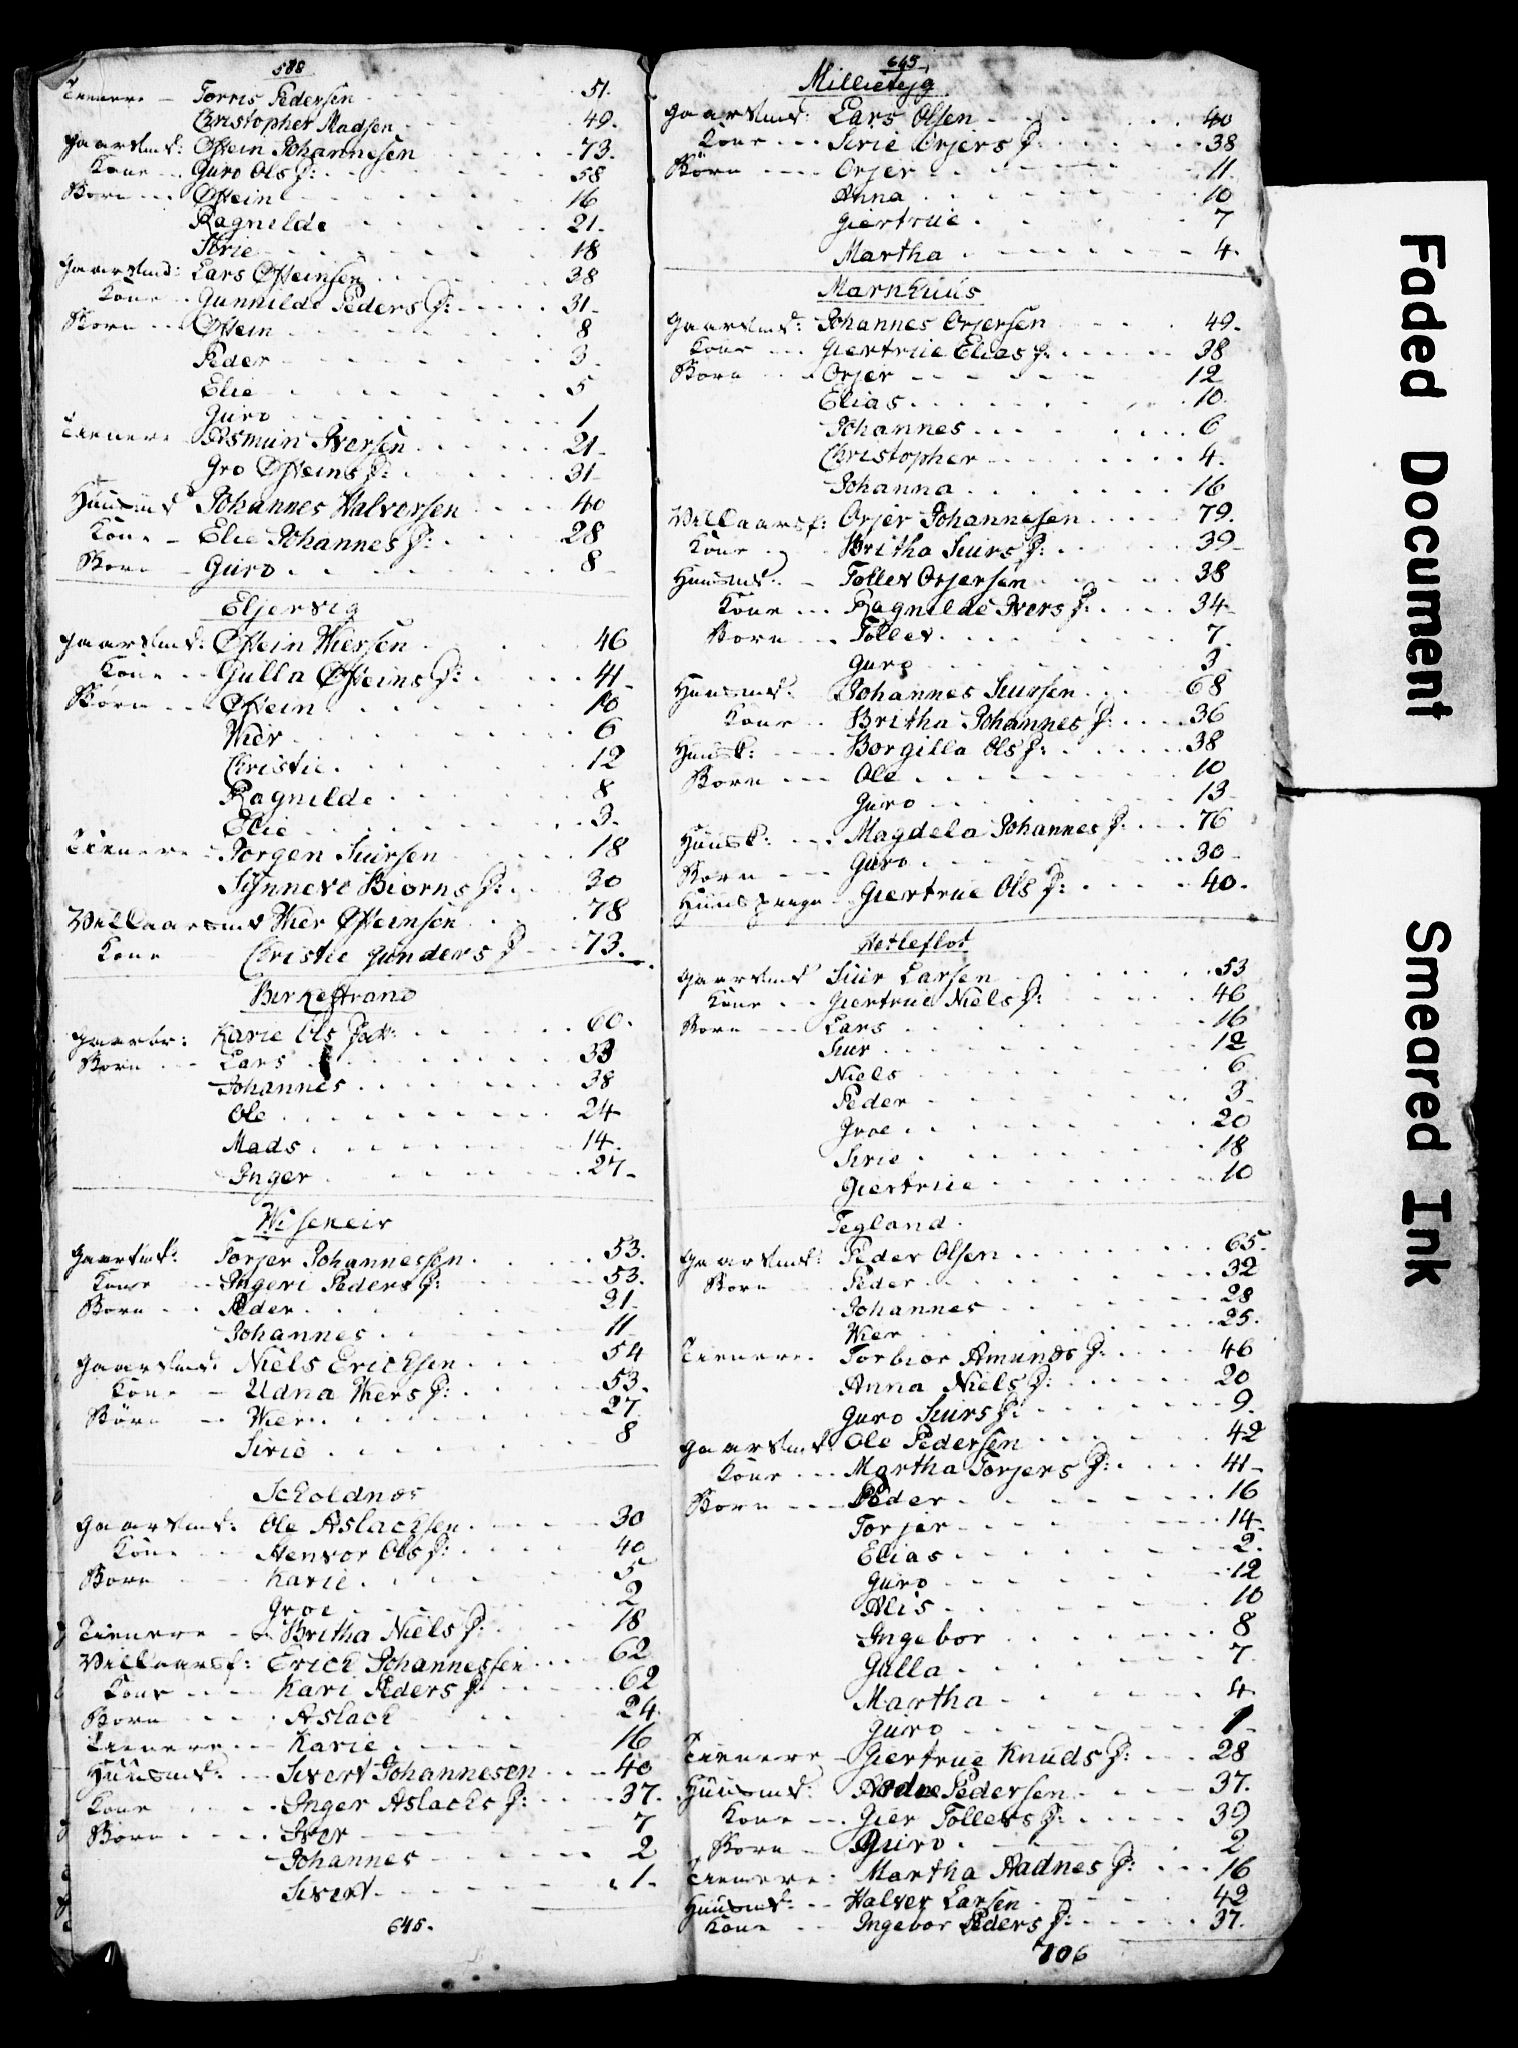 588
Tienere - Torris Pedersen 51.
Christopher Madsen 49.
gaardmd: Østein Johannesen 73.
Kone Guro Ols D: 58
Børn Østein 16
Ragnilde 21.
Sirie 18
gaardmd: Lars Østeinsen 38
Kone Gunnilde Peders D: 31
Børn Østein 8
Peder 3
Elie 5
Guro 1
Tienere Asmun Iversen 21
Gro Østeins D: 31
Huusmd Johannes Halversen 40
Kone Elie Johannes D: 28
Børn Guro 8
Eljervig
gaardmd: Østein Wiersen 46
Kone Gulla Østeins D: 41
Børn Østein 10
Wier 6
Christie 12
Ragnilde 8
Elie 3.
Tienere Jorgen Siursen 18
Synneve Biørns D: 30
Villaarsmd Wier Østeinsen 78
Kone Christie gunders D 73.
Birkestrand
gaardbr: Karie Ols Dat: 60.
Børn Lars 33
Johannes 38
Ole 24
Mads 14
Inger 27
Wiseneir
gaardmd: Torjer Johannessen 53.
Kone Ingeri Peders D: 53.
Børn Peder 21
Johannes 11
gaardmd: Niels Ericksen 54
Kone Udna Wiers D: 53.
Børn Wier 27
Sirie 8
Scholdnæs
gaardmd: Ole Aslachsen 30
Kone Henvor Ols D: 40
Børn Karie 5
Groe 2
Tienere Britha Niels D: 18
Villaarsf: Erich Johannessen 62
Kone Kari Peders D 62
Børn Aslach 24
Tienere Karie 16
Huusmd: Sivert Johannesen 40
Kone Inger Aslachs D: 37.
Børn Iver 7
Johannes 2
Sivert 1
645.
645
Millieteig
gaardmd: Lars Olsen 40
Kone Sirie Orjers D: 38
Børn Orjer 11
Anna 10
Giertrue 7
Martha 4.
Marnhuus
gaardmd: Johannes Orjersen 49.
Kone Giertrue Elias D: 38
Børn Orjer 12
Elias 10
Johannes 6
Christopher 4.
Johanna 16
Villaarsf: Orjer Johannesen 79.
Kone Britha Siurs D: 39
Huusmd: Tollev Orjersen 38
Kone Ragnilde Ivers D: 34
Børn Tollev 7.
Guro 3
Huusmd: Johannes Siursen 68
Kone Britha Johannes D: 36
Huusk: Borgilla Ols D: 38
Børn Ole 10
Guro 13
Huusk: Magdela Johannes D: 76
Børn Guro 30
Huuspige Giertrue Ols D: 40.
Hetleflot
gaardmd Siur Larsen 53
Kone Giertrue Niels D: 46
Børn Lars 16
Siur 12
Niels 6
Peder 3
Groe 20
Sirie 18
Giertrue 10
Tegland.
gaardmd: Peder Olsen 65.
Børn Peder 32
Johannes 28
Wier 25.
Tienere. Torbior Amunds D: 46
Anna Niels D: 20
Guro Siurs D: 9
gaardmd: Ole Pedersen 42
Kone Martha Torjers D: 41
Børn Peder 16
Torjer 14
Elias 2.
Guro 12
Alis 10
Ingebor 8
Gulla 7
Martha 4
Guro 1
Tienere Giertrue Knuds D: 28
Huusmd: Aadne Pedersen 37.
Kone Gier Tollevs D: 39
Børn Guro 2
Tienere: Martha Aadnes D: 16
Huusmd: Halver Larsen 42
Kone Ingebor Peders D: 37.
706
Faded Document
Smeared Ink